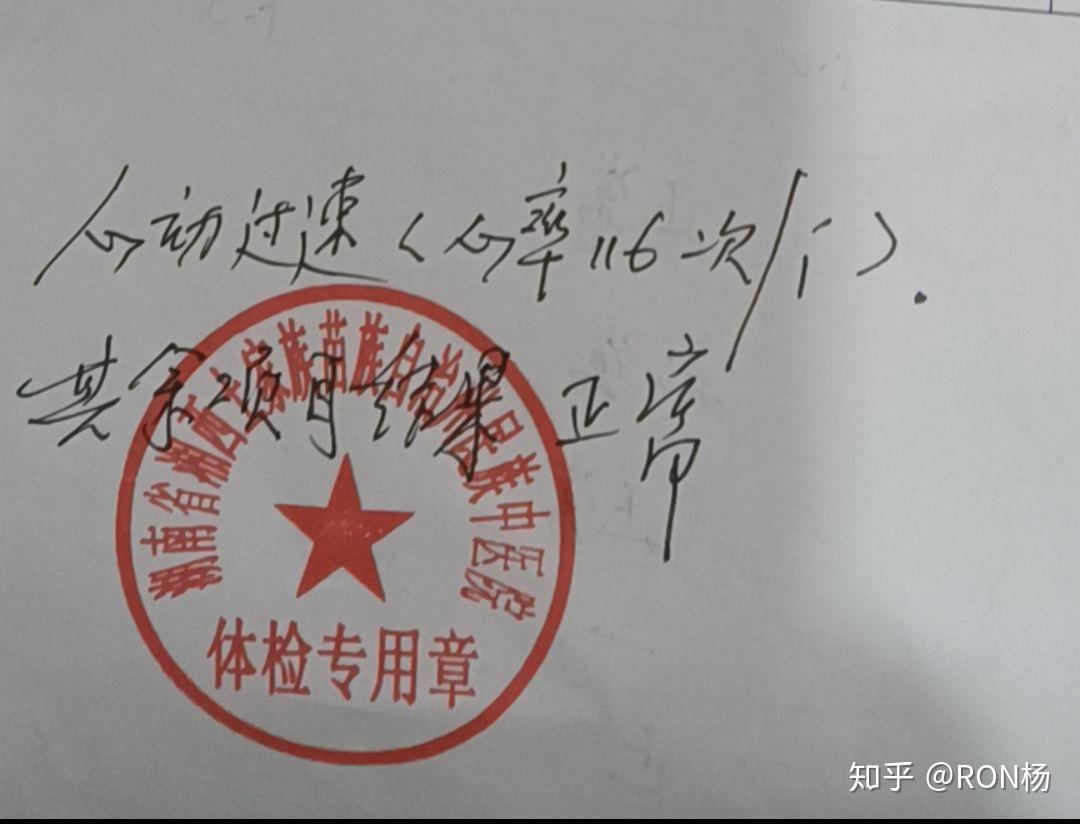 心动过速（心率116次/分）.
其余项目结果正常
湖南省湘西土家族苗族自治州民族中医院
体检专用章
知乎 @RON杨